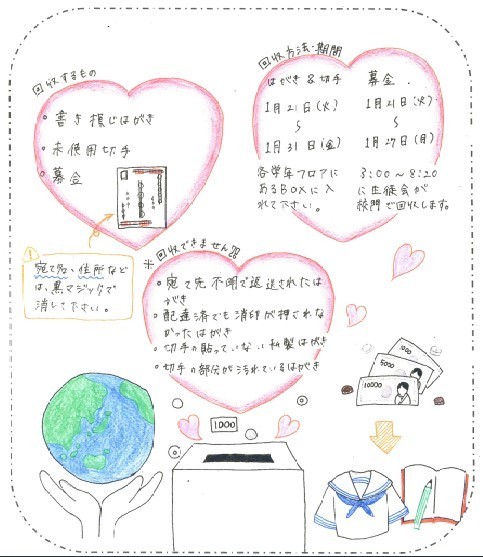 回収するもの
・書き損じはがき
・未使用切手
・募金
!
宛て名、住所など
は、黒マジックで
消して下さい。
回収方法・期間
はがき&切手
1月21日(火)
〜
1月31日(金)
各学年フロアに
あるBOXに入
れて下さい。
募金
1月21日(火)
〜
1月27日(月)
8:00〜8:20
に生徒会が
校門で回収します。
※回収できません!!
・宛て先不明で返送されたは
がき
・配達済でも消印が押されな
かったはがき
・切手の貼っていない私製はがき
・切手の部分が汚れているはがき
1000
1000
5000
10000